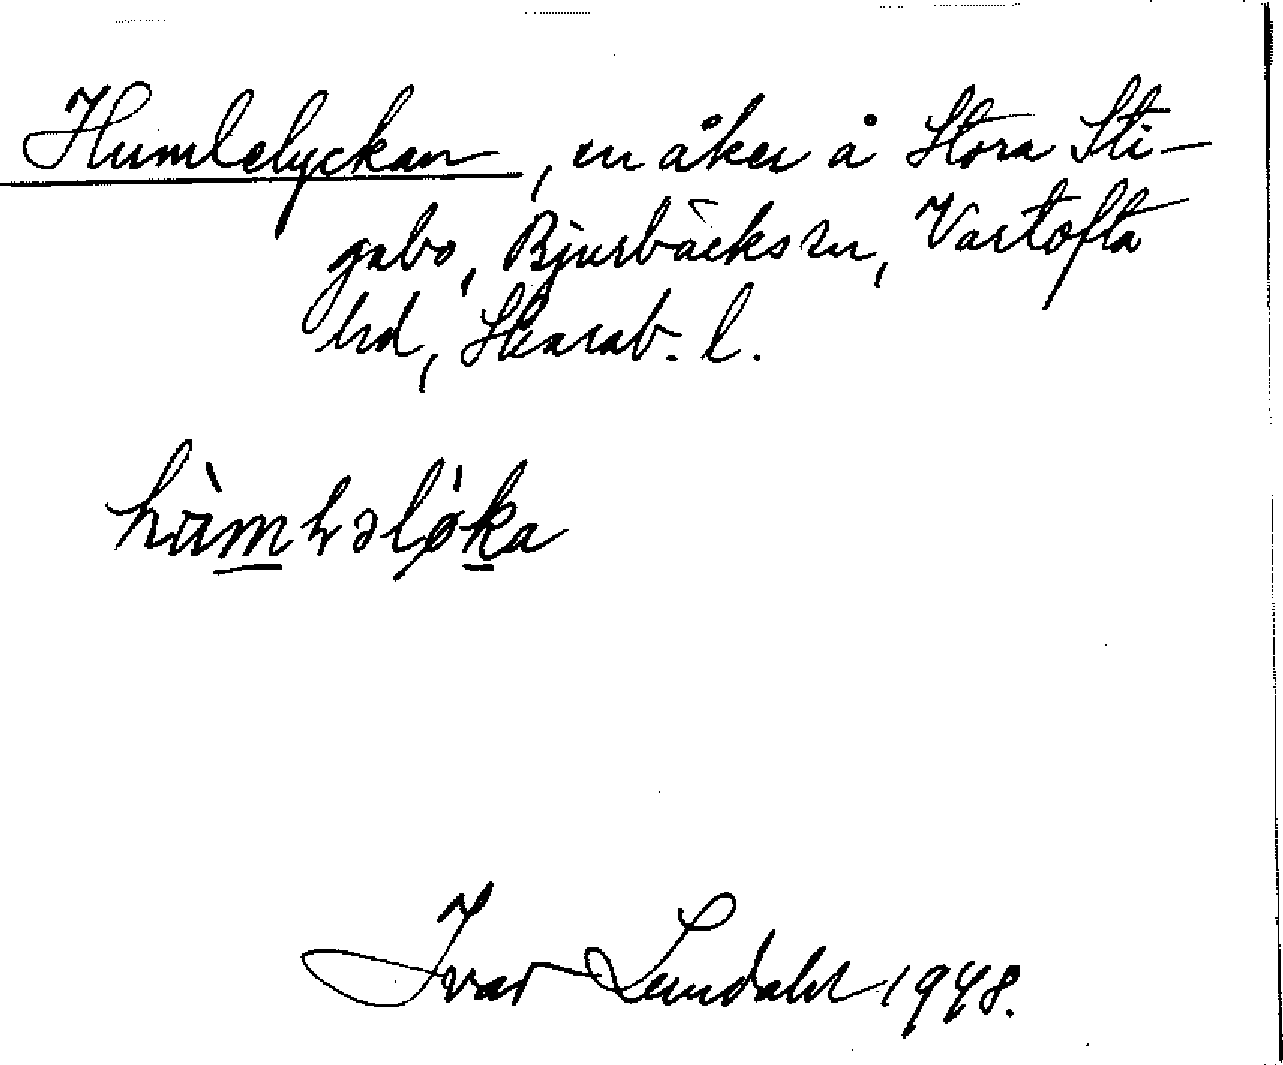 Humlelyckan, en åker å Stora Sti-
gabo, Bjurbäcks sn, Vartofta
hrd, Skarab. l.
hùmləlø̀ka
Ivar Lundahl 1948.